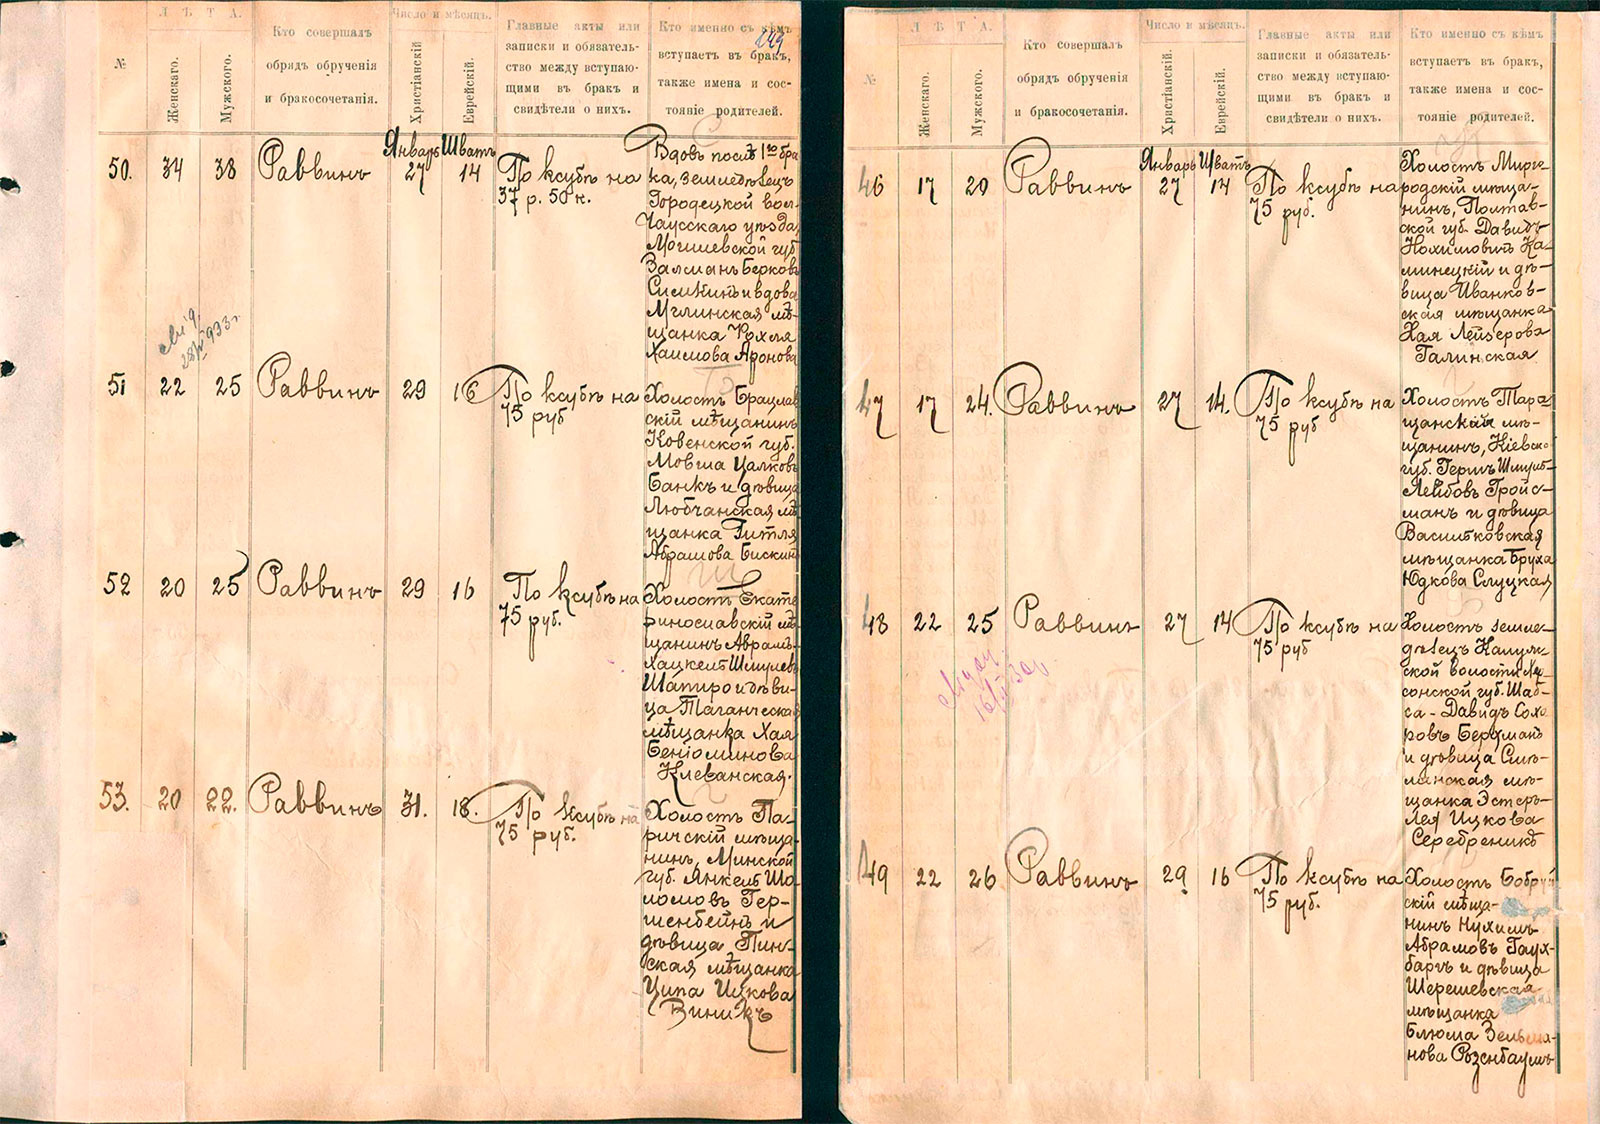 Л Ѣ Т А.
Число и мѣсяцъ.
№
Женскаго.
Мужского.
Кто совершалъ
обрядъ обрученія
и бракосочетанія.
Христіанскій
Еврейскій.
Главные акты или
записки и обязатель-
ство между вступаю-
щими въ бракъ и
свидѣтели о нихъ.
Кто именно съ кѣмъ
вступаетъ въ бракъ,
также имена и сос-
тояніе родителей.
Январь Шватъ
50. 34 38 Раввинъ 27 14
По ксубѣ на
37 р. 50 к.
Вдовъ послѣ 1го бра
ка, земледѣлецъ
Городецкой вол.
Чаусскаго уѣзда,
Могилевской губ
Залманъ Берковъ
Симкинъ и вдова
Мглинская мѣ
щанка Рохля
Хаимова Аронова
51 22 25 Раввинъ 29 16
По ксубѣ на
75 руб
Холостъ Брацлав
скій мѣщанинъ
Ковенской губ.
Мовша Цалковъ
Банкъ и дѣвица
Любчанская мѣ
щанка Гитля
Абрамова Бискинъ
52 20 25 Раввинъ 29 16
По ксубѣ на
75 руб.
Холостъ Екате
ринославскій мѣ
щанинъ Авраамъ
Хацкель Шмулевъ
Шапиро и дѣви-
ца Таганческая
мѣщанка Хая
Беніоминова
Клеванская.
53. 20 22. Раввинъ 31. 18.
По ксубѣ на
75 руб.
Холостъ Па-
ричскій мѣща-
нинъ, Минской
губ. Янкель Шо-
ломовъ Гер-
шенбейнъ и
дѣвица Пин-
ская мѣщанка
Ципа Ицкова
Виникъ
Л Ѣ Т А.
Число и мѣсяцъ.
№
Женскаго.
Мужского.
Кто совершалъ
обрядъ обрученія
и бракосочетанія.
Христіанскій.
Еврейскій.
Главные акты или
записки и обязатель-
ство между вступаю-
щими въ бракъ и
свидѣтели о нихъ.
Кто именно съ кѣмъ
вступаетъ въ бракъ,
также имена и сос-
тояніе родителей.
Январь Шватъ
46 17 20 Раввинъ 27 14
По ксубѣ на
75 руб.
Холостъ Мирг-
родскій мѣща-
нинъ, Полтав-
ской губ. Давидъ
Нохимовъ Ка-
минецкій и дѣ-
вица Иванков-
ская мѣщанка
Хая Лейзерова
Галинская
47 17 24. Раввинъ 27 14.
По ксубѣ на
75 руб
Холостъ Тара-
щанскій мѣ-
щанинъ, Кіевск.
губ. Гершъ Шмуль-
Лейбовъ Гройс-
манъ и дѣвица
Васильковская
мѣщанка Бруха
Юдкова Слуцкая
48 22 25 Раввинъ 27 14
По ксубѣ на
75 руб
Холостъ земле-
дѣлецъ
ской волости Хер-
сонской губ. Шаб-
са-Давидъ
ровъ Берманъ
и дѣвица Смѣ-
лянская мѣ-
щанка Эстеръ-
Лея Ицкова
Серебреникъ
49 22 26 Раввинъ 29 16
По ксубѣ на
75 руб.
Холостъ Бобруй
скій мѣща-
нинъ Нухимъ
Абрамовъ Гаух-
баръ и дѣвица
Шерешевская
мѣщанка
Блюма Зельма-
нова Розенбаумъ